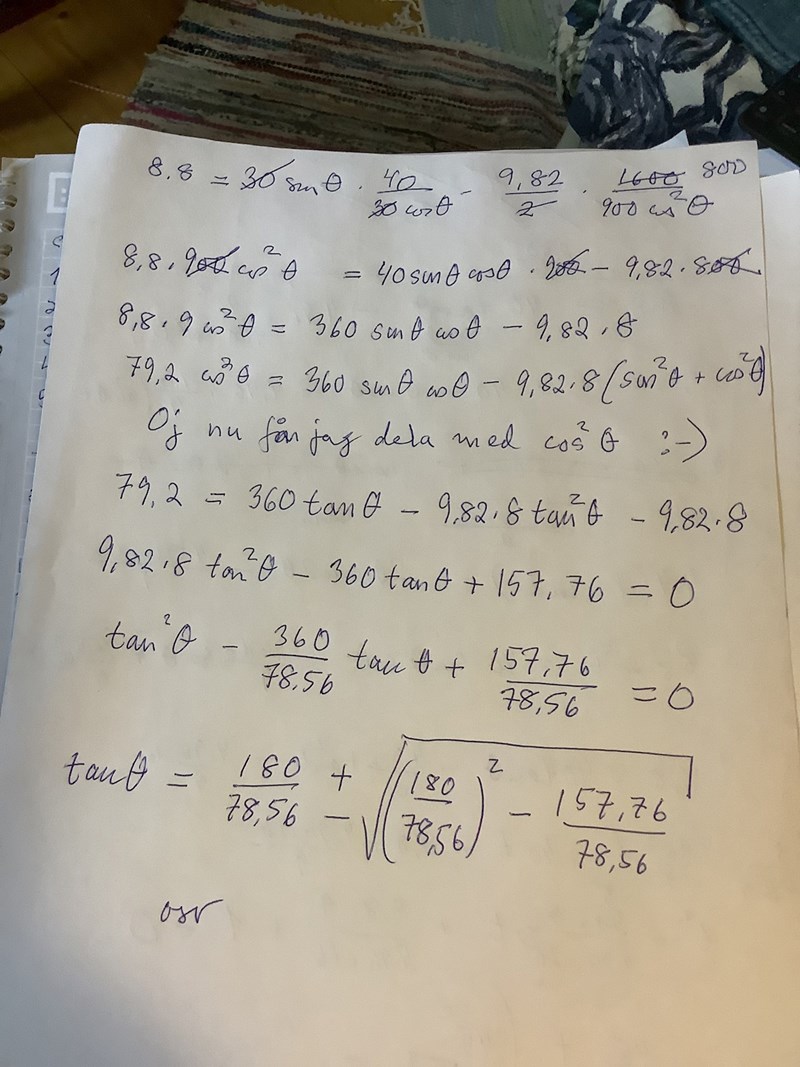 8.8 = 30 sinθ · 40/(30 cosθ) - 9,82/2 · 1600/(900 cos²θ) 800
8,8 · 900 cos²θ = 40 sinθ cosθ · 900 - 9,82 · 800
8,8 · 9 cos²θ = 360 sinθ cosθ - 9,82 · 8
79,2 cos²θ = 360 sinθ cosθ - 9,82·8 (sin²θ + cos²θ)
Oj nu får jag dela med cos²θ :-)
79,2 = 360 tanθ - 9,82·8 tan²θ - 9,82·8
9,82·8 tan²θ - 360 tanθ + 157,76 = 0
tan²θ - 360/78,56 tanθ + 157,76/78,56 = 0
tanθ = 180/78,56 ± √((180/78,56)² - 157,76/78,56)
osv